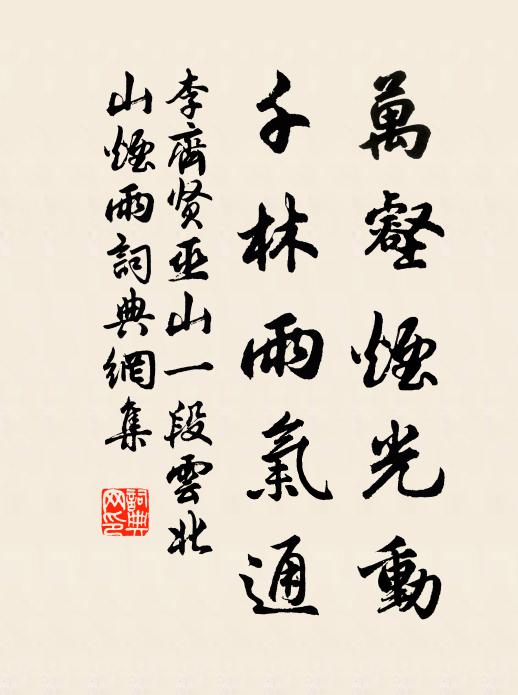 萬壑煙光動
千林雨氣通
李齊贤巫山一段雲北
山煙雨詞典網集
詞典网印